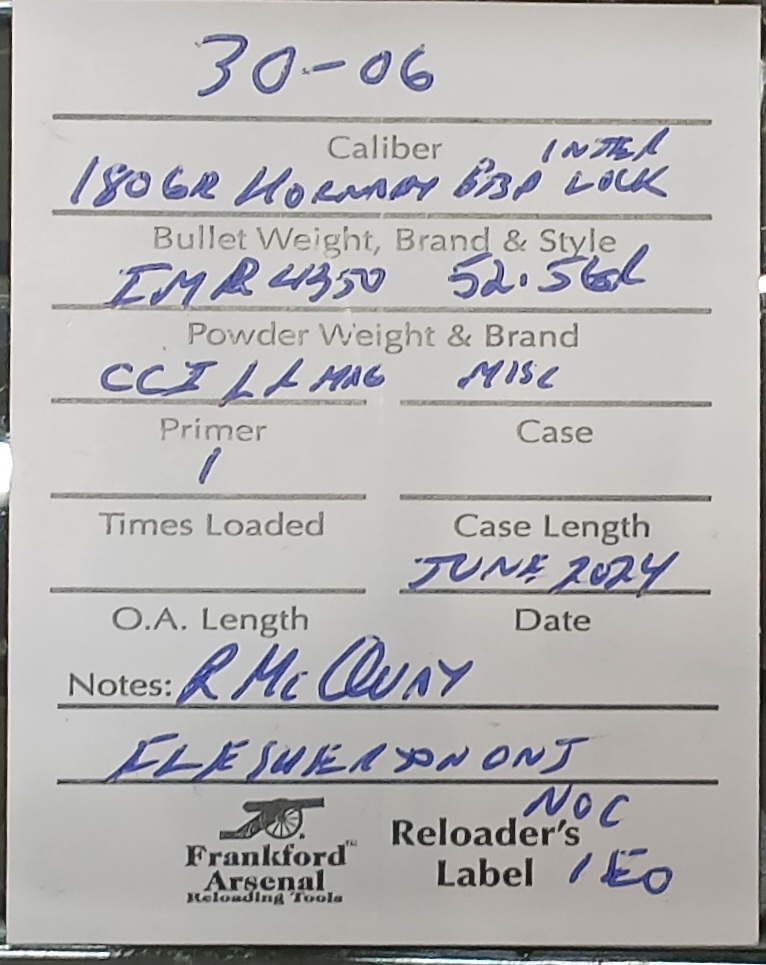 30-06
Caliber INTER
180GR HORNADY BTSP LOCK
Bullet Weight, Brand & Style
IMR 4350 52.5GR
Powder Weight & Brand
CCI LR MAG MISC
Primer Case
1
Times Loaded Case Length
JUNE 2024
O.A. Length Date
Notes: R MCQUAY
FLESHERTON ONT
NOC
Frankford Arsenal Reloading Tools
Reloader's
Label 1E0